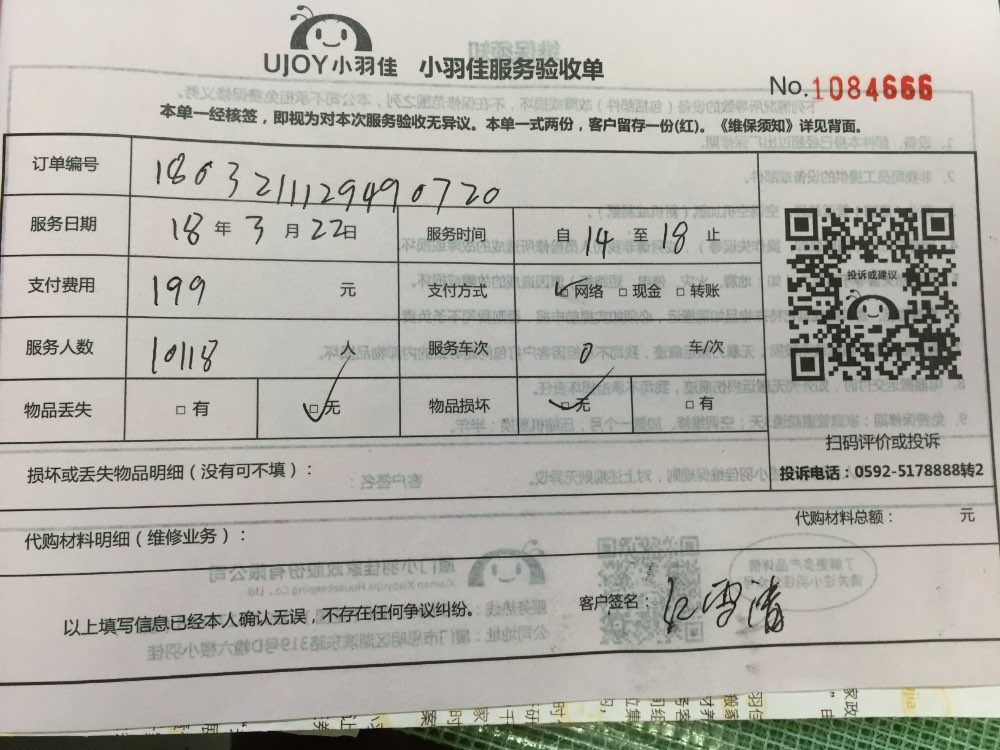 UJOY小羽佳 小羽佳服务验收单
No.1084666
本单一经核签，即视为对本次服务验收无异议。本单一式两份，客户留存一份(红)。《维保须知》详见背面。
订单编号 180321112949 0720
服务日期 18 年 3 月 22日 服务时间 自 14 至 18 止
支付费用 199 元 支付方式 ☑网络 □现金 □转账
服务人数 10118 人 服务车次 0 车/次
物品丢失 □有 ☑无 物品损坏 ☑无 □有
投诉或建议
扫码评价或投诉
投诉电话：0592-5178888转2
损坏或丢失物品明细（没有可不填）：
代购材料明细（维修业务）： 代购材料总额： 元
以上填写信息已经本人确认无误，不存在任何争议纠纷。 客户签名： 雪清